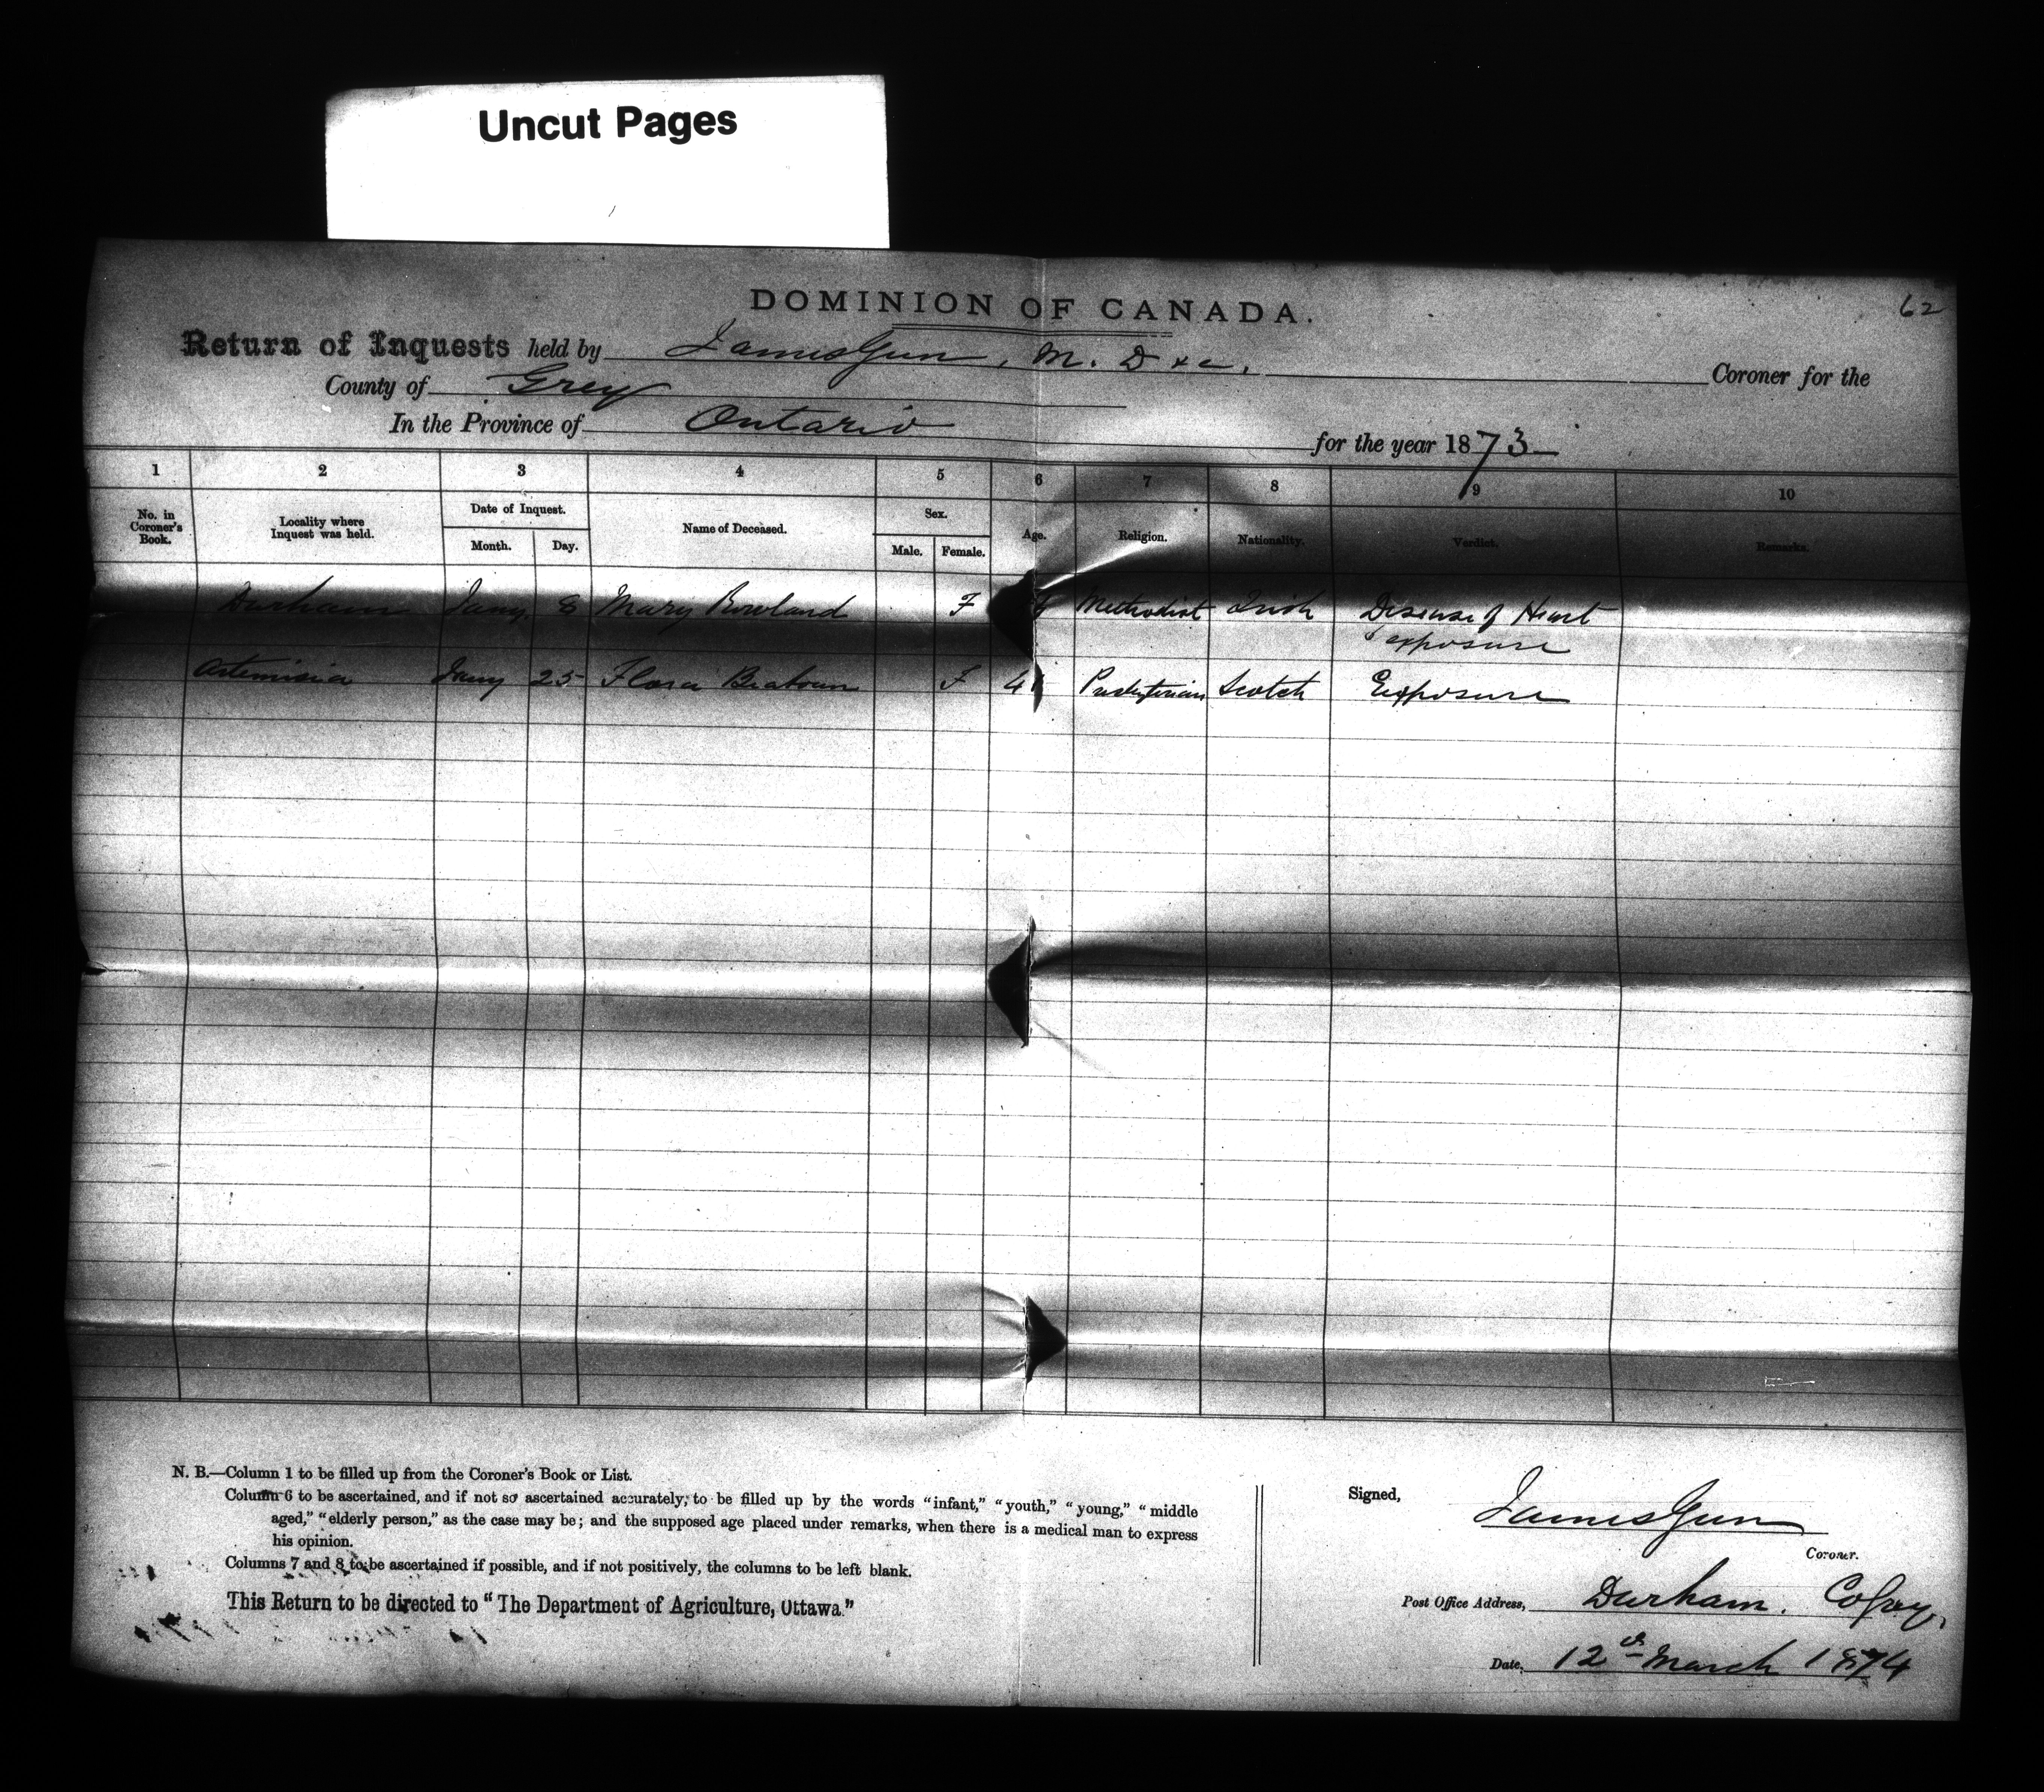 Uncut Pages
62
DOMINION OF CANADA.
Return of Inquests held by James Gun, M. D &c. Coroner for the
County of Grey
In the Province of Ontario for the year 1873
1 2 3 4 5 6 7 8 9 10
No. in Coroner's Book. Locality where Inquest was held. Date of Inquest. Month. Day. Name of Deceased. Sex. Male. Female. Age. Religion. Nationality. Verdict. Remarks.
Durham Jany. 8 Mary Rowland F Methodist Irish Disease of Heart
& exposure
Artemisia Jany 25 Flora F Presbyterian Scotch Exposure
N. B.—Column 1 to be filled up from the Coroner's Book or List.
Column 6 to be ascertained, and if not so ascertained accurately, to be filled up by the words "infant," "youth," "young," "middle
aged," "elderly person," as the case may be; and the supposed age placed under remarks, when there is a medical man to express
his opinion.
Columns 7 and 8 to be ascertained if possible, and if not positively, the columns to be left blank.
This Return to be directed to "The Department of Agriculture, Ottawa."
Signed,
James Gun
Coroner.
Post Office Address, Durham. Co Grey,
Date, 12th March 1874